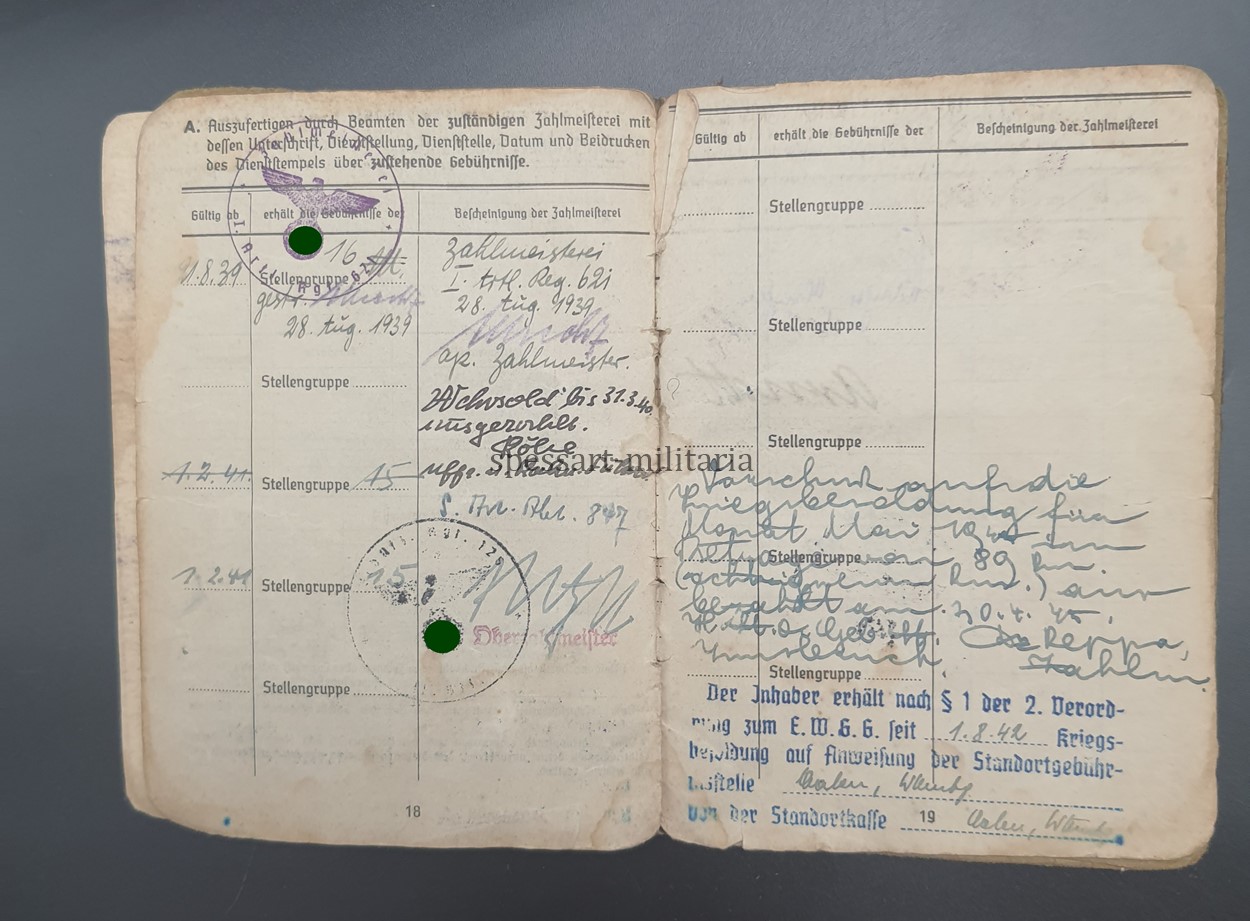 A. Auszufertigen durch Beamten der zuständigen Zahlmeisterei mit
dessen Unterschrift, Dienststellung, Dienststelle, Datum und Beidrucken
des Dienststempels über zustehende Gebührnisse.
Gültig ab erhält die Gebührnisse der Bescheinigung der Zahlmeisterei
1.8.39 Stellengruppe 16
Zahlmeisterei
I. Artl. Reg. 621
28. Aug. 1939
gestr.
28. Aug. 1939
ap. Zahlmeister.
Stellengruppe
Wehrsold bis 31.3.40
ausgezahlt.
Uffz. u.
1.2.41. Stellengruppe 15
S. Art. Abt. 847
1.2.41 Stellengruppe 15
Oberzahlmeister
Stellengruppe
18
spessart-militaria
Gültig ab erhält die Gebührnisse der Bescheinigung der Zahlmeisterei
Stellengruppe
Stellengruppe
Stellengruppe
Vorschuß auf die
Kriegsbesoldung für
Monat Mai 1945 im
Betrage von 89 Rm.
Stellengruppe
(achtzigneun Rm.) aus
bezahlt am 30.4.45.
Reppa,
Zahlm.
Stellengruppe
Der Inhaber erhält nach § 1 der 2. Verord-
nung zum E.W.G.G. seit 1.8.42 Kriegs-
besoldung auf Anweisung der Standortgebühr-
nisstelle Aalen, Württbg
von der Standortkasse Aalen,
19